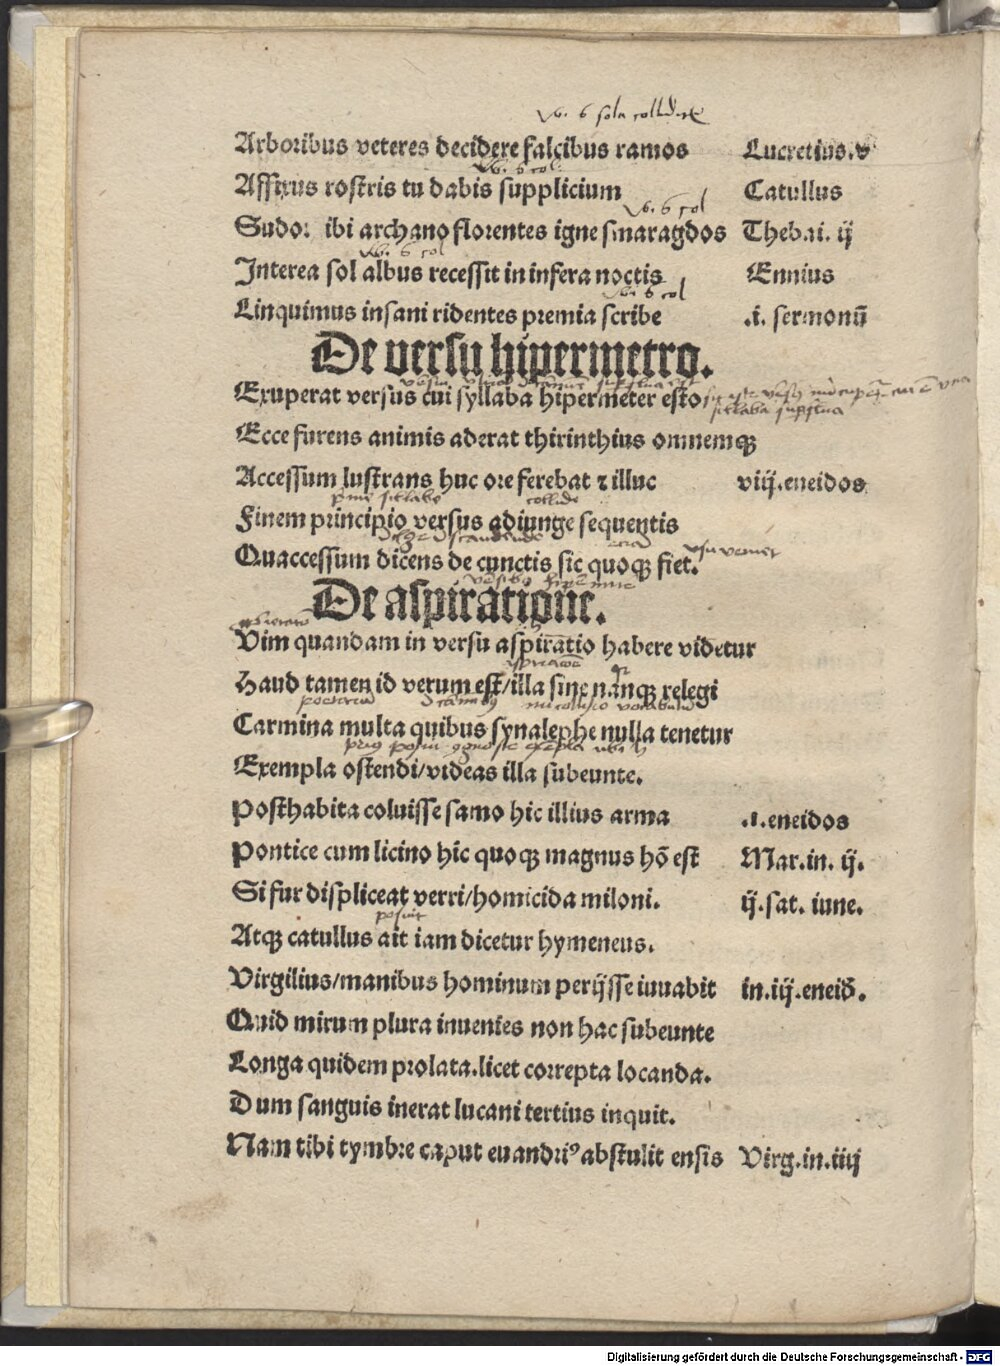 Arboribus veteres decidere falcibus ramos Lucretius.v
Affixus rostris tu dabis supplicium Catullus
Sudor ibi archano florentes igne smaragdos Thebai. ij
Interea sol albus recessit in infera noctis Ennius
Linquimus insani ridentes premia scribe .i. sermonū
De versu hipermetro.
Exuperat versus cui syllaba hipermeter esto
Ecce furens animis aderat thirinthius omnemqꝫ
Accessum lustrans huc ore ferebat ⁊ illuc viij.eneidos
Finem principio versus adiunge sequentis
Quaccessum dicens de cunctis sic quoqꝫ fiet.
De aspiratione.
Vim quandam in versu aspiratio habere videtur
Haud tamen id verum est/illa sine nanqꝫ relegi
Carmina multa quibus synalephe nulla tenetur
Exempla ostendi/videas illa subeunte.
Posthabita coluisse samo hic illius arma .i.eneidos
Pontice cum licino hic quoqꝫ magnus hō est Mar.in. ij.
Si fur displiceat verri/homicida miloni. ij.sat. iune.
posuit
Atqꝫ catullus ait iam dicetur hymeneus.
Virgilius/manibus hominum perijsse iuuabit in.iij.eneid̄.
Quid mirum plura inuenies non hac subeunte
Longa quidem prolata.licet correpta locanda.
Dum sanguis inerat lucani tertius inquit.
Nam tibi tymbre caput euandriꝰ abstulit ensis Virg.in.iiij
Digitalisierung gefördert durch die Deutsche Forschungsgemeinschaft - DFG